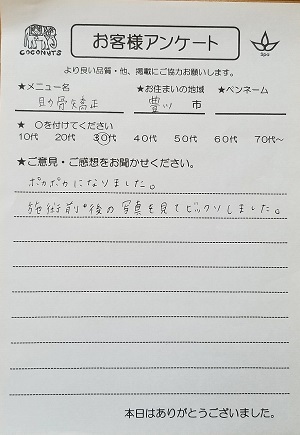 COCONUTS
お客様アンケート
Spa
より良い品質・他、掲載にご協力お願いします。
★メニュー名 ★お住まいの地域 ★ペンネーム
骨 矯正 豊川 市
★ ○を付けてください
10代 20代 30代 40代 50代 60代 70代～
★ご意見・ご感想をお聞かせください。
ポカポカになりました。
施術前・後の写真を見てビックリしました。
本日はありがとうございました。